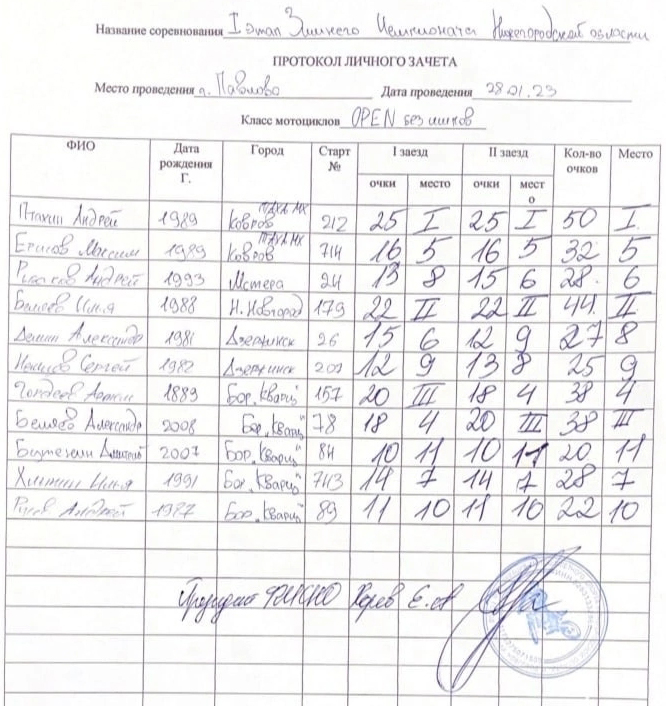 Название соревнования I этап Зимнего Чемпионата Нижегородской области
ПРОТОКОЛ ЛИЧНОГО ЗАЧЕТА
Место проведения г. Павлово Дата проведения 28.01.23
Класс мотоциклов OPEN без шипов
ФИО Дата рождения Г. Город Старт № I заезд II заезд Кол-во очков Место
очки место очки место
Птахин Андрей 1989 Ковров 212 25 I 25 I 50 I
Максим 1989 Ковров 714 16 5 16 5 32 5
Андрей 1993 Мстера 24 13 8 15 6 28 6
Беляев Илья 1988 Н. Новгород 179 22 II 22 II 44 II
Демин Александр 1981 Дзержинск 26 15 6 12 9 27 8
Сергей 1982 Дзержинск 12 9 13 8 25 9
Гордеев 1889 Бор "Кварц" 157 20 III 18 4 38 4
Беляев Александр 2008 Бор "Кварц" 78 18 4 20 III 38 III
2007 Бор "Кварц" 84 10 11 10 11 20 11
Илья 1991 Бор "Кварц" 743 14 7 14 7 28 7
Андрей 1987 Бор "Кварц" 89 11 10 11 10 22 10
Президент Е.А